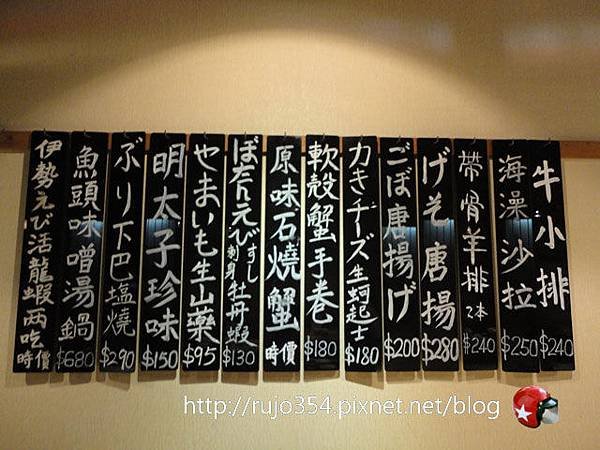 牛小排 $240
海澡沙拉 $250
帶骨羊排 2本 $240
げそ唐揚 $280
ごぼ唐揚げ $200
カきチーズ 生蚵起士 $180
軟殼蟹手卷 $180
原味石燒蟹 時價
ぼたりえび すし 刺身 牡丹蝦 $130
やまいも生山藥 $95
明太子珍味 $150
ぶり下巴塩燒 $290
魚頭味噌湯鍋 $680
伊勢えび活龍蝦兩吃 時價
http://rujo354.pixnet.net/blog